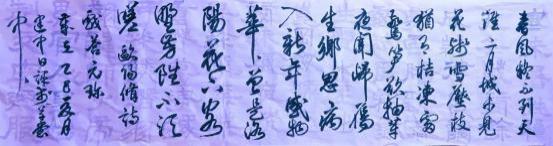 春風疑不到天
涯二月城未見
花残雪壓枝
猶有桔凍雷
驚笋欲抽芽
夜聞歸雁
生鄉思病
入新年感物
華曾是洛
陽花下客
野芳雖不須
嗟歐陽脩詩
戲答元珍
乙巳夏月